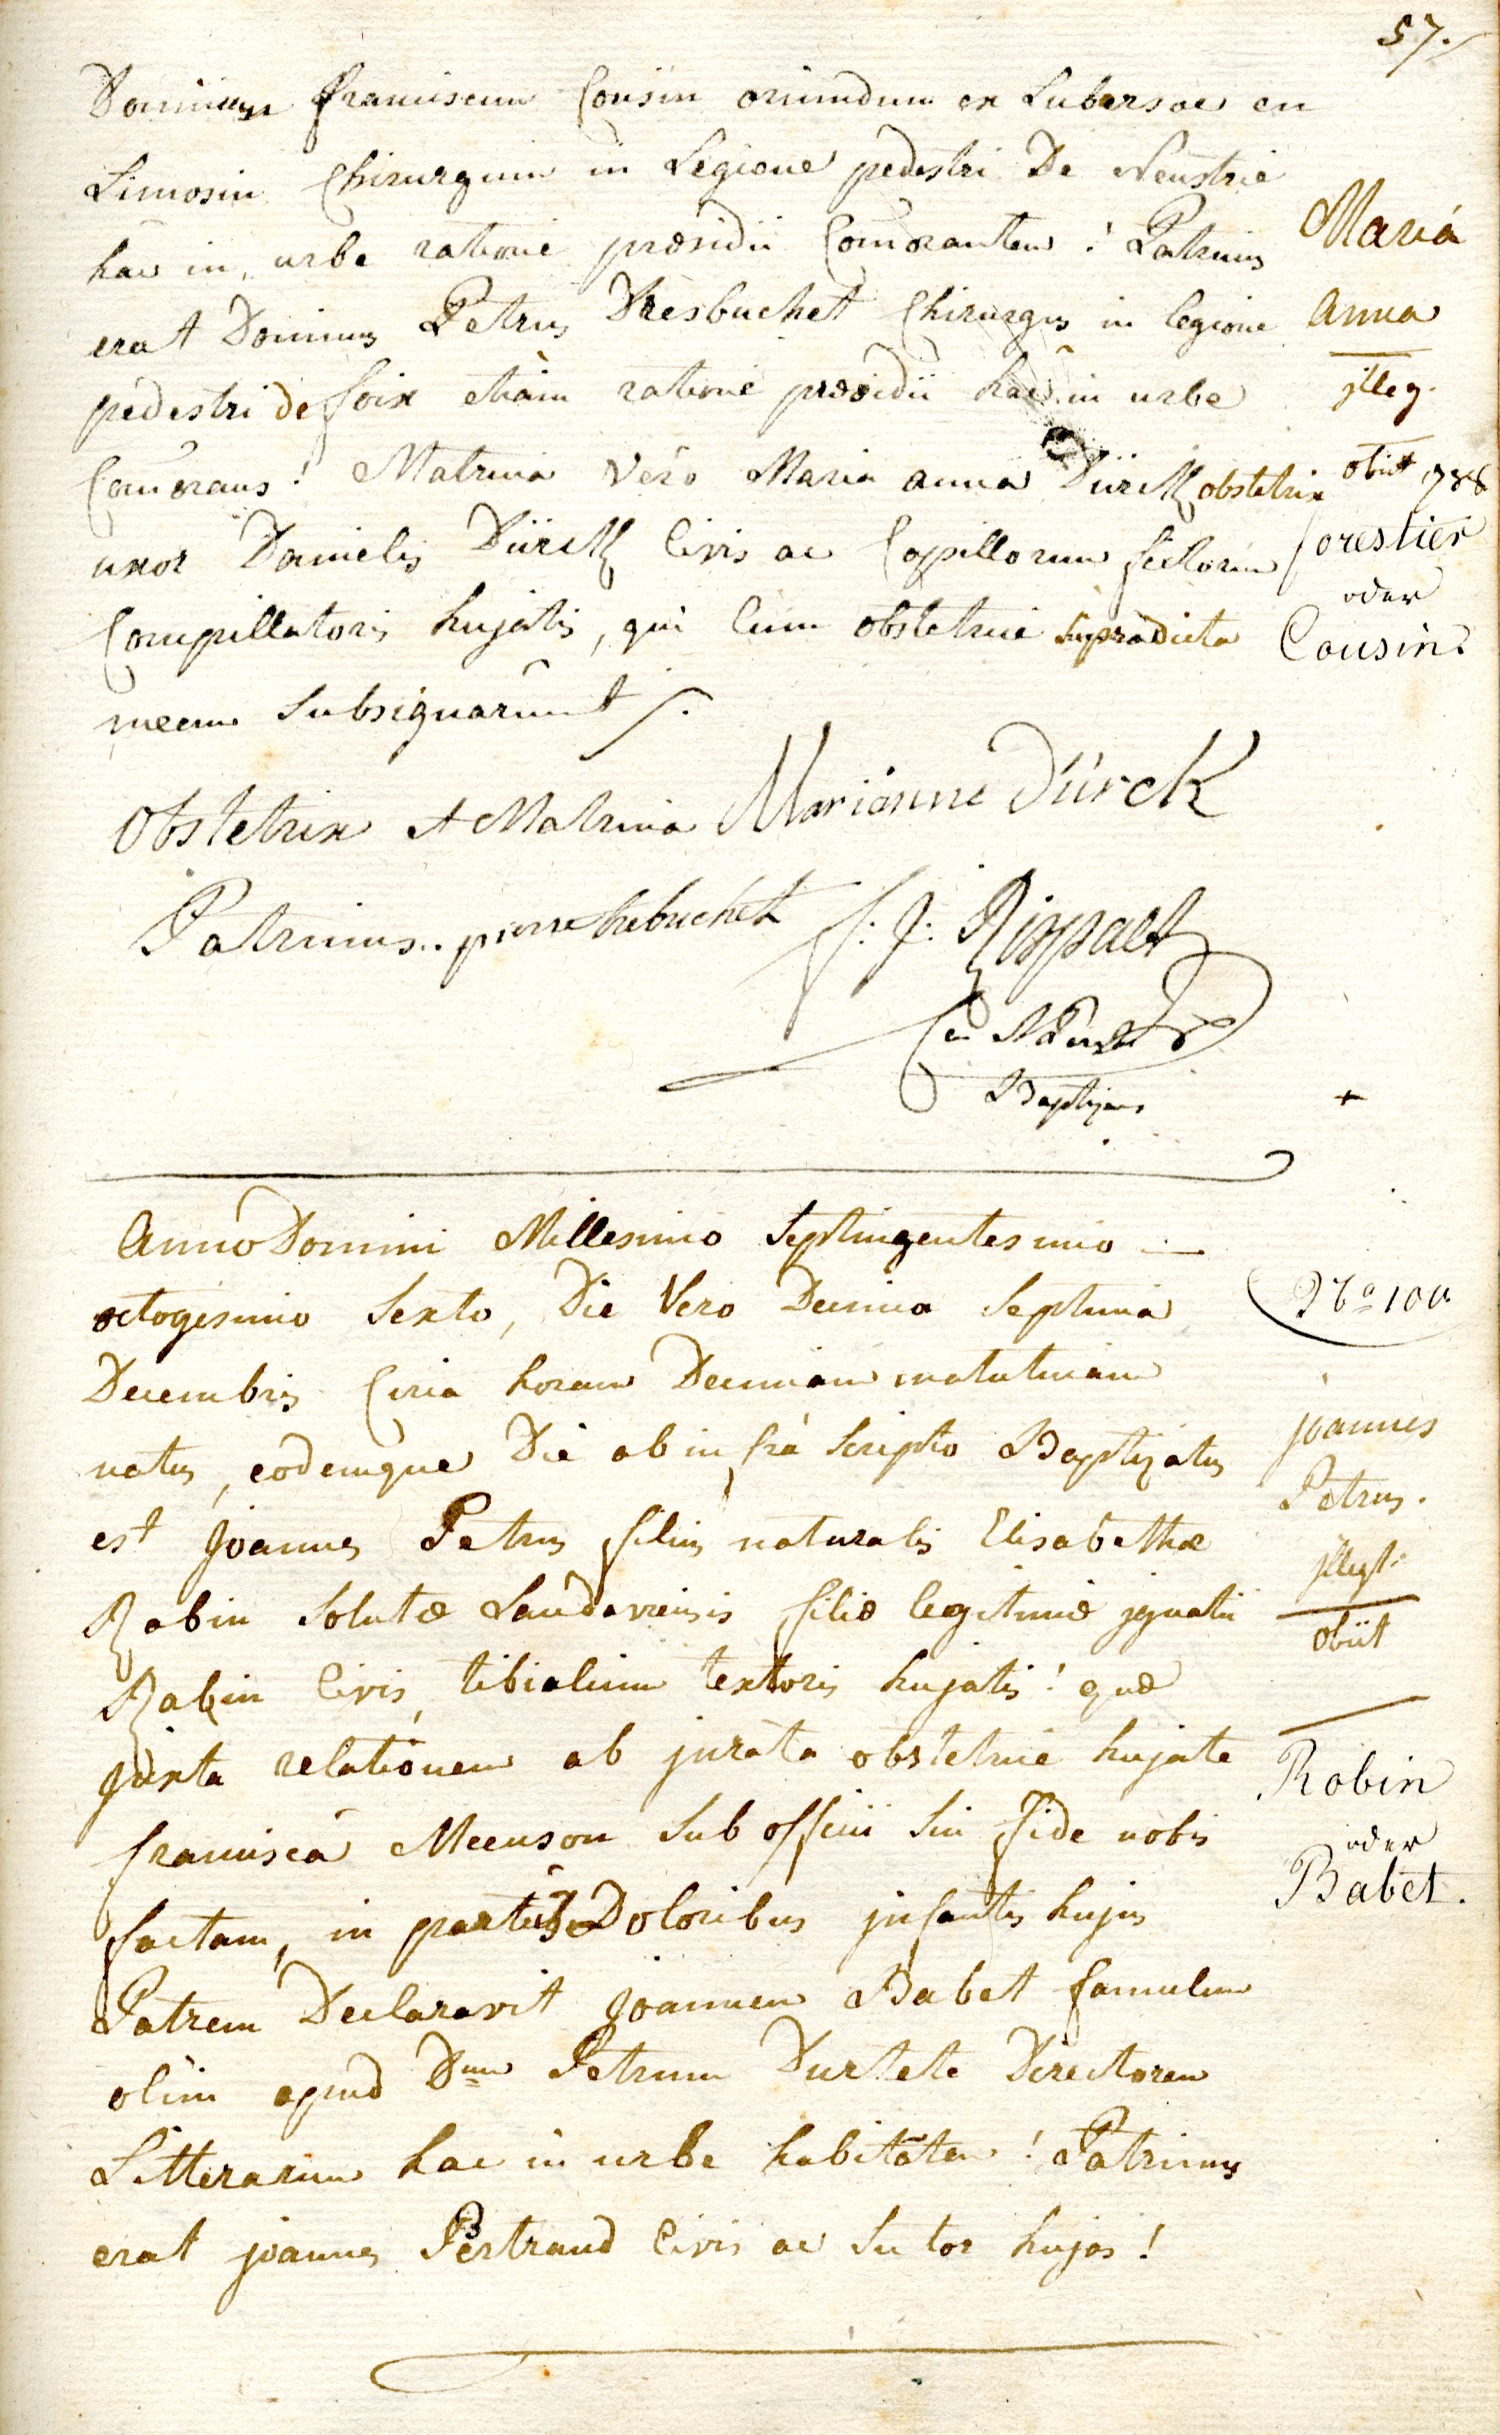 57.
Dominum franciscum Cousin oriundum ex Lubersac en
Limosin Chirurgum in Legione pedestri De Neustrie
hac in urbe ratione præsidii Comorantem! Patrinus
erat Dominus Petrus Dresbuchet Chirurgus in legione
pedestri de foix etiàm ratione præsidii hac in urbe
Comorans! Matrina Verò Maria anna Dürck obstetrix
uxor Danielis Dürck Civis ac Capillorum fictorum
Compillatoris hujatis, qui Cum obstetrice supradicta
mecum Subsignarunt
Maria
anna
jlleg.
obiit 1788
forestier
oder
Cousin.
Obstetrix et Matrina Marianne Dürck
Patrinus.. pierre trebuchet
f: J: Rippaet
Baptizans
+
Anno Domini Millesimo Septingentesimo
octogesimo Sexto, Die Vero Decima Septima
Decembris Circa horam Decimam matutinam
natus, eodemque Die ab infrà Scripto Baptizatus
est Joannes Petrus filius naturalis Elisabethæ
Robin Solutæ Landaviensis filiæ legitimæ jgnatii
Robin Civis, tibialium textoris hujatis! quæ
juxta relationem ab jurata obstetrice hujate
francisca Meenson Sub officii Sui fide nobis
factam, in partus Doloribus jnfantis hujus
Patrem Declaravit Joannem Babet famulum
olim apud Dnum Petrum Durtete Directorem
Litterarum hac in urbe habitatem! Patrinus
erat joannes Bertrand Civis ac Sutor hujas!
No 100.
joannes
Petrus.
jllegt.
obiit
Robin
oder
Babet.